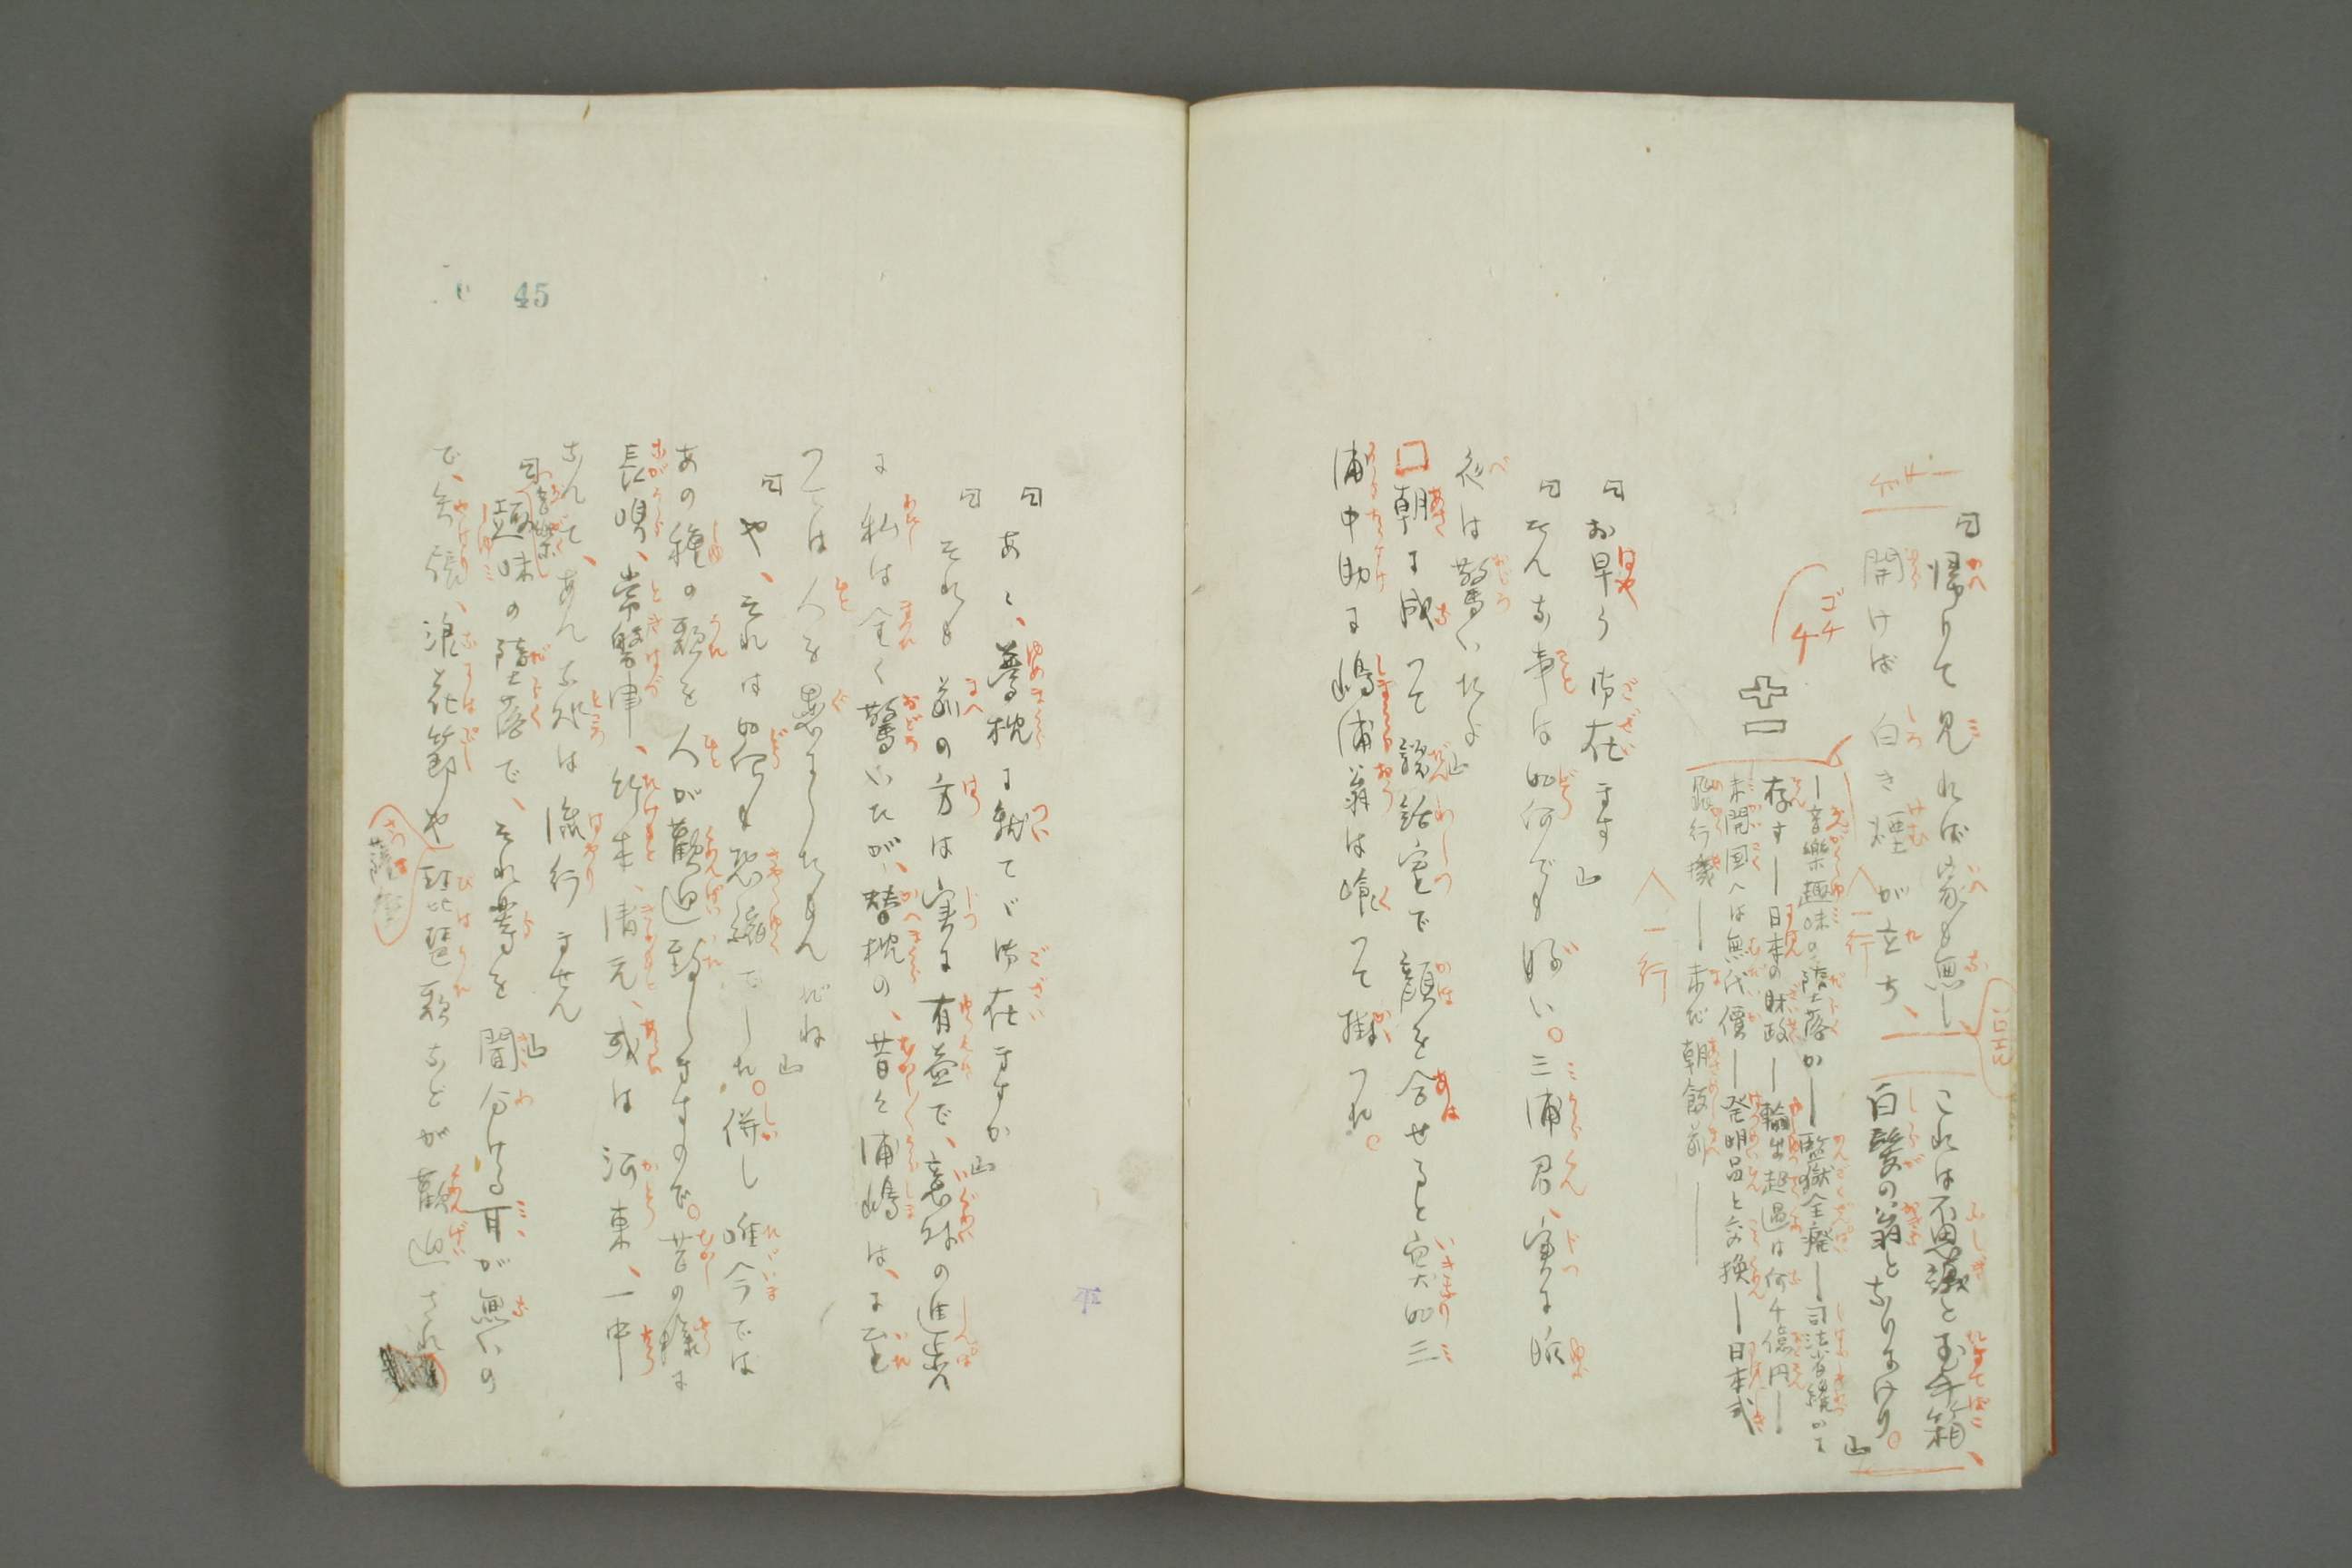 「帰りて見れば家も無し、これは不思議と玉手箱、
開けば白き煙が立ち、白髪の翁となりにけり。」
一行
ゴチ
4
十一
―音樂趣味の堕落か―監獄全廢―司法省縮
存す―日本の財政―輸出超過は何千億円―
未開国へは無代價―発明品と交換―日本式
銀行機―未だ朝飯前―
一行
「お早う御在ます」
「そんな事は如何でも好い。三浦君、実に昨
夜は驚いたよ」
□朝に成つて談話室で顔を合せると突如三
浦中助に嶋浦翁は喰つて掛つた。
45
「あゝ、夢枕に就てゞ御在ますか」
「それも前の方は実に有益で、意外の進歩
に私は全く驚いたが、替枕の、昔々浦嶋は、に至
つては人を愚にしたもんだね」
「や、それは如何も恐縮でした。併し唯今では
あの種の歌を人が歡迎致しますので。昔の樣に
長唄、常磐津、竹本、清元、或は河東、一中
なんて、あんな処は流行ません」
「音樂趣味の堕落で、それ等を聞分ける耳が無いの
で、矢張、浪花節や琵琶歌などが歡迎され
薩摩